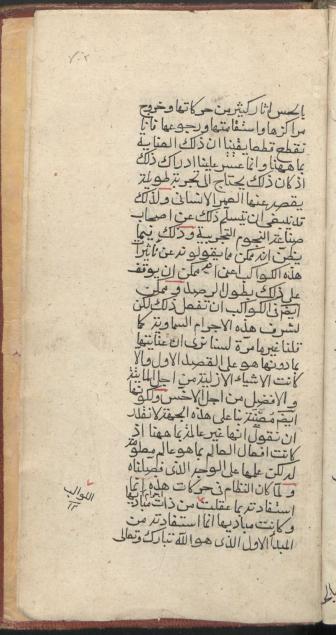 بالحس اثار كثيرة من حركاتها وخروج
مراكزها واستقامتها ورجوعها فانا
نقطع قطعا يقينا ان ذلك للعناية
بما ههنا وانما عسر علينا ادراك ذلك
اذ كان ذلك يحتاج الى تجربة طويلة
يقصر عنها العمر الانسانى ولذلك
قد ينبغى ان نتسلم ذلك عن اصحاب
صناعة النجوم التجربية وذلك فيما
يظن انه ممكن مما يقولونه عن تأثيرات
هذه الكواكب اعنى انه ممكن ان يوقف
على ذلك بطول الرصد وممكن
ايضا فى الكواكب ان تفعل ذلك لكن
لشرف هذه الاجرام السماوية كما
قلنا غير ما مرة لسنا نرى ان عنايتها
بما دونها هو على القصد الاول والا
كانت الاشياء الازلية من اجل المائتة
والافضل من اجل الاخس ولكونها
ايضا معتنية بنا على هذه الجهة لا نقدر
ان نقول انها غير عالمة بما ههنا اذ
كانت افعال العالم بما هو عالم معلومة
له لكن علمها على الوجه الذى فصلناه
ولما كان النظام فى حركات هذه انما
استفادته بما عقلت من ذات مباديها
وكانت مباديها انما استفادته من
المبدا الاول الذى هو الله تبارك وتعالى